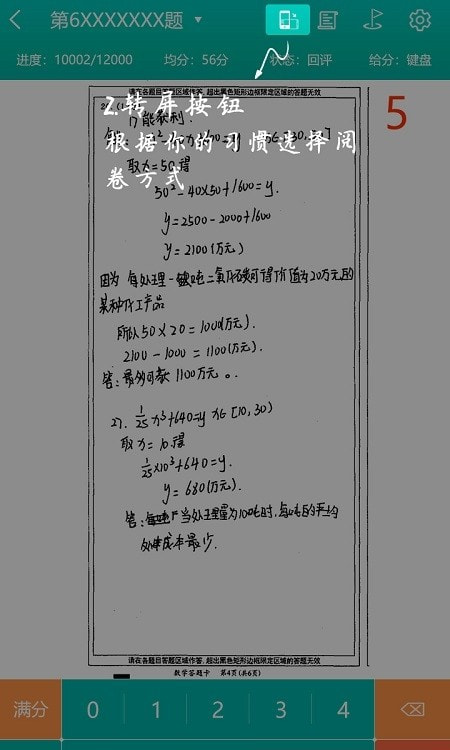 第6XXXXXXX题
进度：10002/12000 均分：56分 状态：回评 给分：键盘
请在各题目答题区域作答，超出黑色矩形边框限定区域的答题无效
5
2.转屏按钮
根据你的习惯选择阅
卷方式
取x=50得
50²-40×50+1600=y.
y=2500-2000+1600
y=2100(万元)
因为 每处理一吨二氧化碳可得价值为20万元的
某种化工产品
所以50×20=1000(万元).
2100-1000=1100(万元).
答:最多可获1100万元。
27. 1/25 x³+640=y x∈[10,30)
取x=10得
1/25×10³+640=y.
y=680(万元).
答: 当处理量为10吨时,每吨的平均
处理成本最少.
请在各题目答题区域作答，超出黑色矩形边框限定区域的答题无效
数学答题卡 第4页(共6页)
满分 0 1 2 3 4